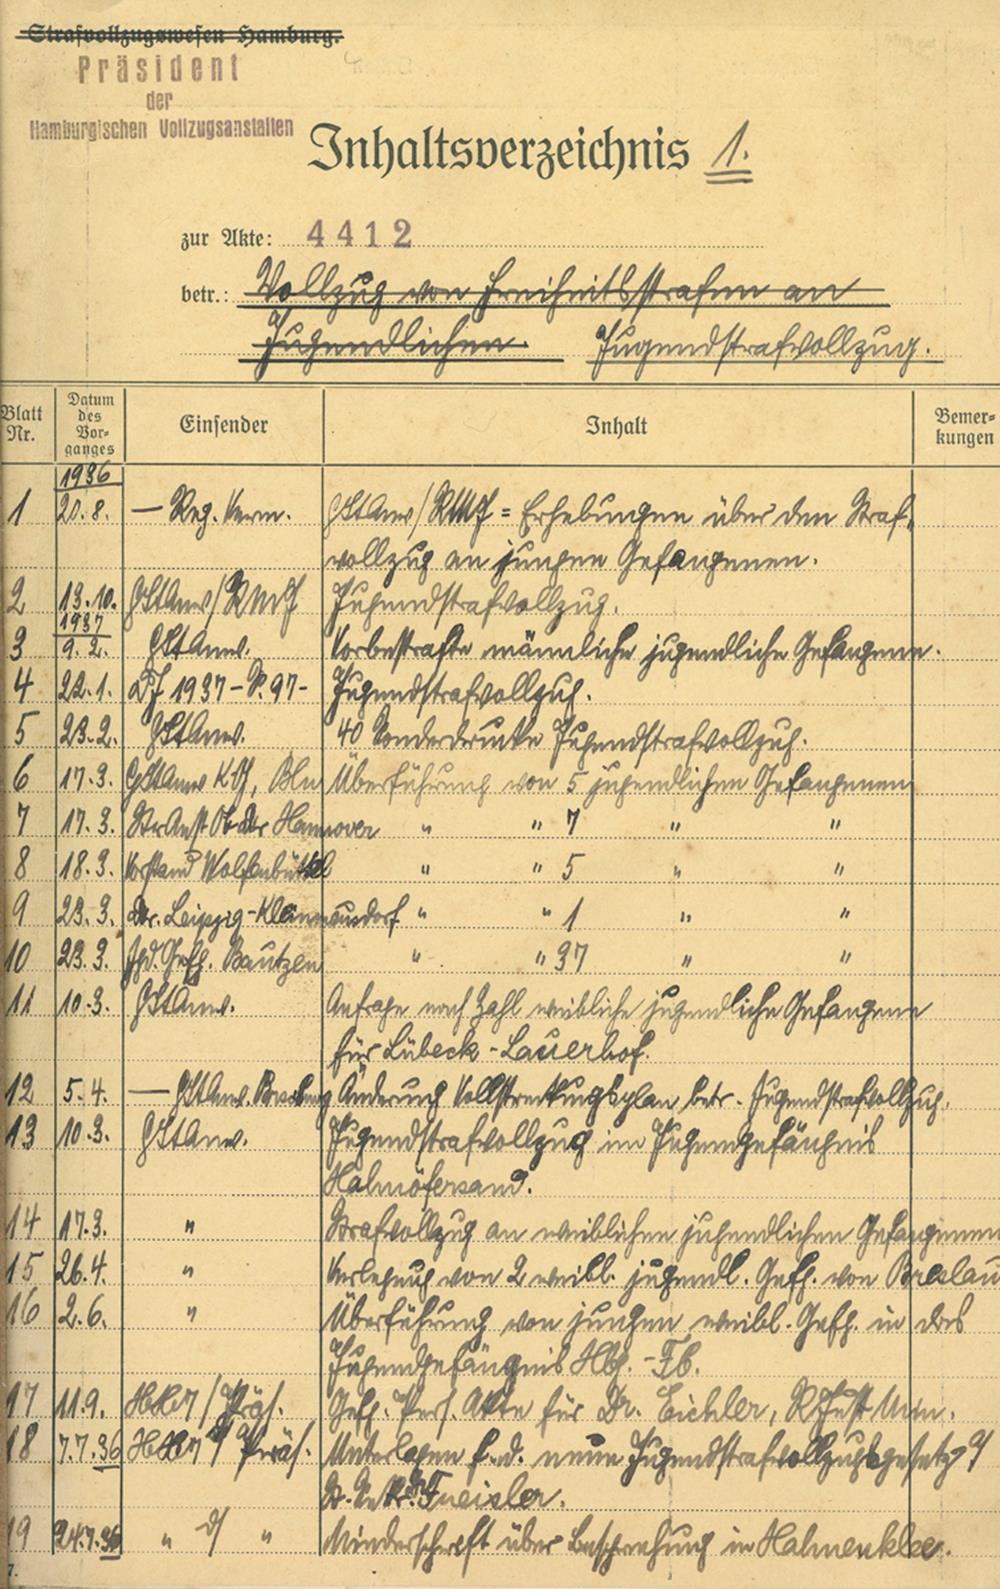 Strafvollzugswesen Hamburg.
Präsident
der
Hamburgischen Vollzugsanstalten
Inhaltsverzeichnis 1.
zur Akte: 4412
betr.: Vollzug von Freiheitsstrafen an
Jugendlichen. Jugendstrafvollzug.
Blatt Nr. Datum des Vor-ganges Einsender Inhalt Bemer-kungen
1936
1 20.8. — Reg. Verm. GStAnw/RMJ = Erhebungen über den Straf-
vollzug an jungen Gefangenen.
2 13.10. GStAnw/RMJ Jugendstrafvollzug.
1937
3 9.2. GStAnw. Vorbestrafte männliche jugendliche Gefangene.
4 22.1. DJ 1937 - S. 97 - Jugendstrafvollzug.
5 23.2. GStAnw. 40 Sonderdrucke Jugendstrafvollzug.
6 17.3. GStAnw KG, Bln Überführung von 5 jugendlichen Gefangenen
7 17.3. Hannover " " 7 " "
8 18.3. Vorstand Wolfenbüttel " " 5 " "
9 23.3. Leipzig-Kleinmeusdorf " " 1 " "
10 23.3. Jgd. Gefg. Bautzen " " 37 " "
11 10.3. GStAnw. Anfrage nach Zahl weibliche jugendliche Gefangene
für Lübeck-Lauerhof.
12 5.4. — GStAnw. Änderung Vollstreckungsplan betr. Jugendstrafvollzug.
13 10.3. GStAnw. Jugendstrafvollzug im Jugendgefängnis
Hahnöfersand.
14 17.3. " Strafvollzug an weiblichen jugendlichen Gefangenen
15 26.4. " Verlegung von 2 weibl. jugendl. Gefg. von Breslau
16 2.6. " Überführung von jungen weibl. Gefg. in das
Jugendgefängnis Hbg.-Fb.
17 11.9. / Präs. Gefg. Pers. Akte für Dr. Eichler, RJustMin.
18 7.7.36 Präs. Unterlagen f. d. neue Jugendstrafvollzugsgesetz
Freisler.
19 24.7.36 " " Niederschrift über Besprechung in Hahnenklee.
7.